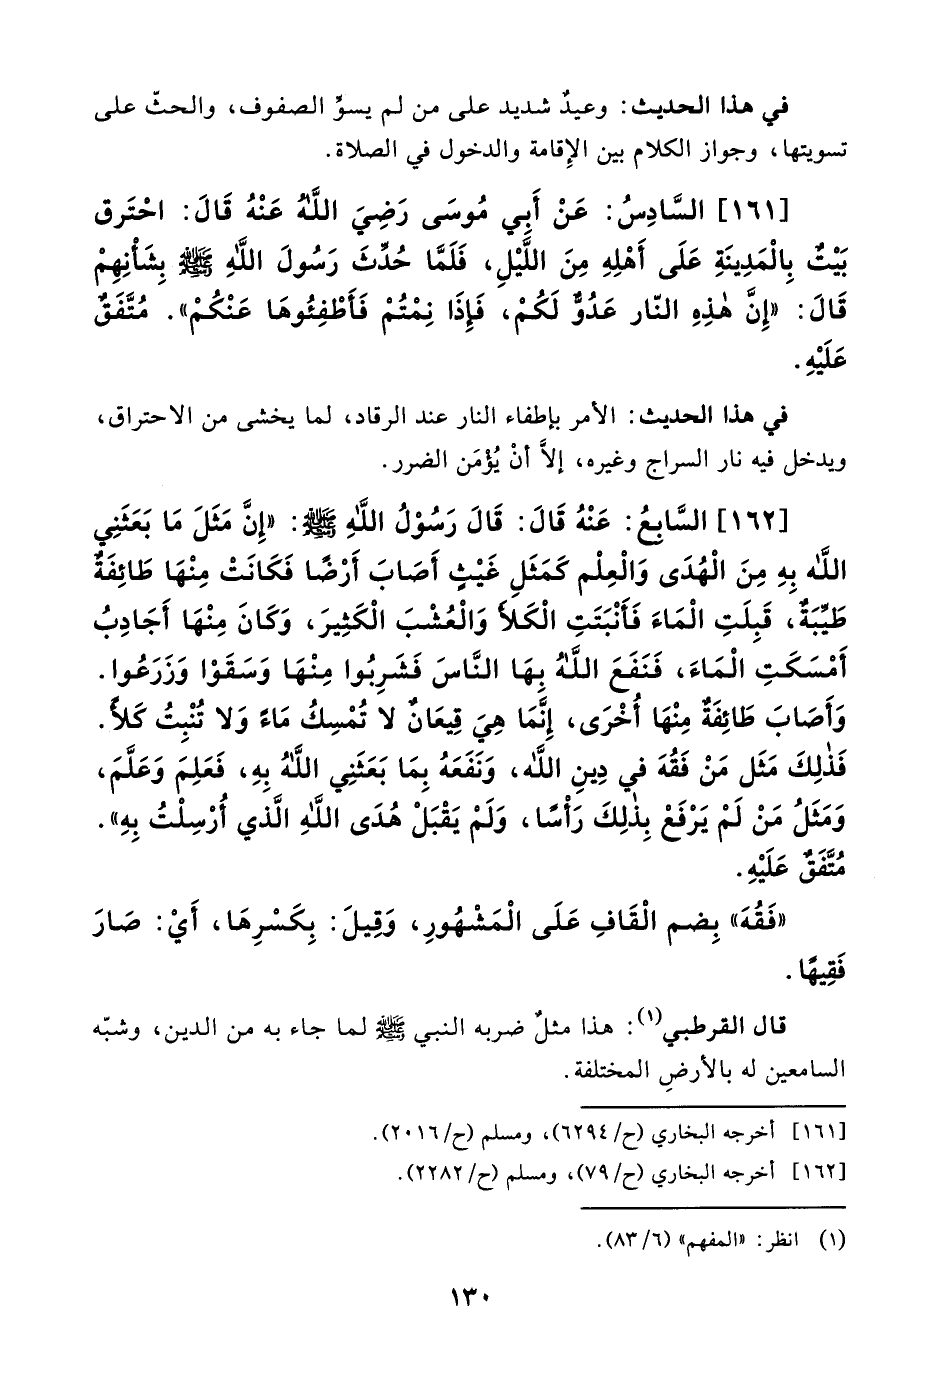 في هذا الحديث: وعيدٌ شديد على من لم يسوِّ الصفوف، والحثّ على
تسويتها، وجواز الكلام بين الإقامة والدخول في الصلاة.
[١٦١] السَّادِسُ: عَنْ أَبِي مُوسَى رَضِيَ اللَّهُ عَنْهُ قَالَ: احْتَرق
بَيْتٌ بِالْمَدِينَةِ عَلَى أَهْلِهِ مِنَ اللَّيْلِ، فَلَمَّا حُدِّثَ رَسُولَ اللَّهِ ﷺ بِشَأْنِهِمْ
قَالَ: «إِنَّ هٰذِهِ النّار عَدُوٌّ لَكُمْ، فَإِذَا نِمْتُمْ فَأَطْفِئُوهَا عَنْكُمْ». مُتَّفَقٌ
عَلَيْهِ.
في هذا الحديث: الأمر بإطفاء النار عند الرقاد، لما يخشى من الاحتراق،
ويدخل فيه نار السراج وغيره، إلاَّ أنْ يُؤْمَن الضرر.
[١٦٢] السَّابِعُ: عَنْهُ قَالَ: قَالَ رَسُوْلُ اللَّهِ ﷺ: «إِنَّ مَثَلَ مَا بَعَثَنِي
اللَّه بِهِ مِنَ الْهُدَى وَالْعِلْم كَمَثَلِ غَيْثٍ أَصَابَ أَرْضًا فَكَانَتْ مِنْهَا طَائِفَةٌ
طَيِّبَةٌ، قَبِلَتِ الْمَاءَ فَأَنْبَتَتِ الْكَلأَ وَالْعُشْبَ الْكَثِيرَ، وَكَانَ مِنْهَا أَجَادِبُ
أَمْسَكَتِ الْمَاءَ، فَنَفَعَ اللَّهُ بِهَا النَّاسَ فَشَرِبُوا مِنْهَا وَسَقَوْا وَزَرَعُوا.
وَأَصَابَ طَائِفَةٌ مِنْهَا أُخْرَى، إِنَّمَا هِيَ قِيعَانٌ لا تُمْسِكُ مَاءً وَلا تُنْبِتُ كَلأً.
فَذٰلِكَ مَثَل مَنْ فَقُهَ في دِينِ اللَّه، وَنَفَعَهُ بِمَا بَعَثَنِي اللَّهُ بِهِ، فَعَلِمَ وَعَلَّمَ،
وَمَثَلُ مَنْ لَمْ يَرْفَعْ بِذٰلِكَ رَأْسًا، وَلَمْ يَقْبَلْ هُدَى اللَّهِ الَّذي أُرْسِلْتُ بِهِ».
مُتَّفَقٌ عَلَيْهِ.
«فَقُهَ» بِضم الْقَافِ عَلَى الْمَشْهُورِ، وَقِيلَ: بِكَسْرِهَا، أَيْ: صَارَ
فَقِيهًا.
قال القرطبي(١): هذا مثلٌ ضربه النبي ﷺ لما جاء به من الدين، وشبّه
السامعين له بالأرضِ المختلفة.
[١٦١] أخرجه البخاري (ح/٦٢٩٤)، ومسلم (ح/٢٠١٦).
[١٦٢] أخرجه البخاري (ح/٧٩)، ومسلم (ح/٢٢٨٢).
(١) انظر: «المفهم» (٨٣/٦).
١٣٠